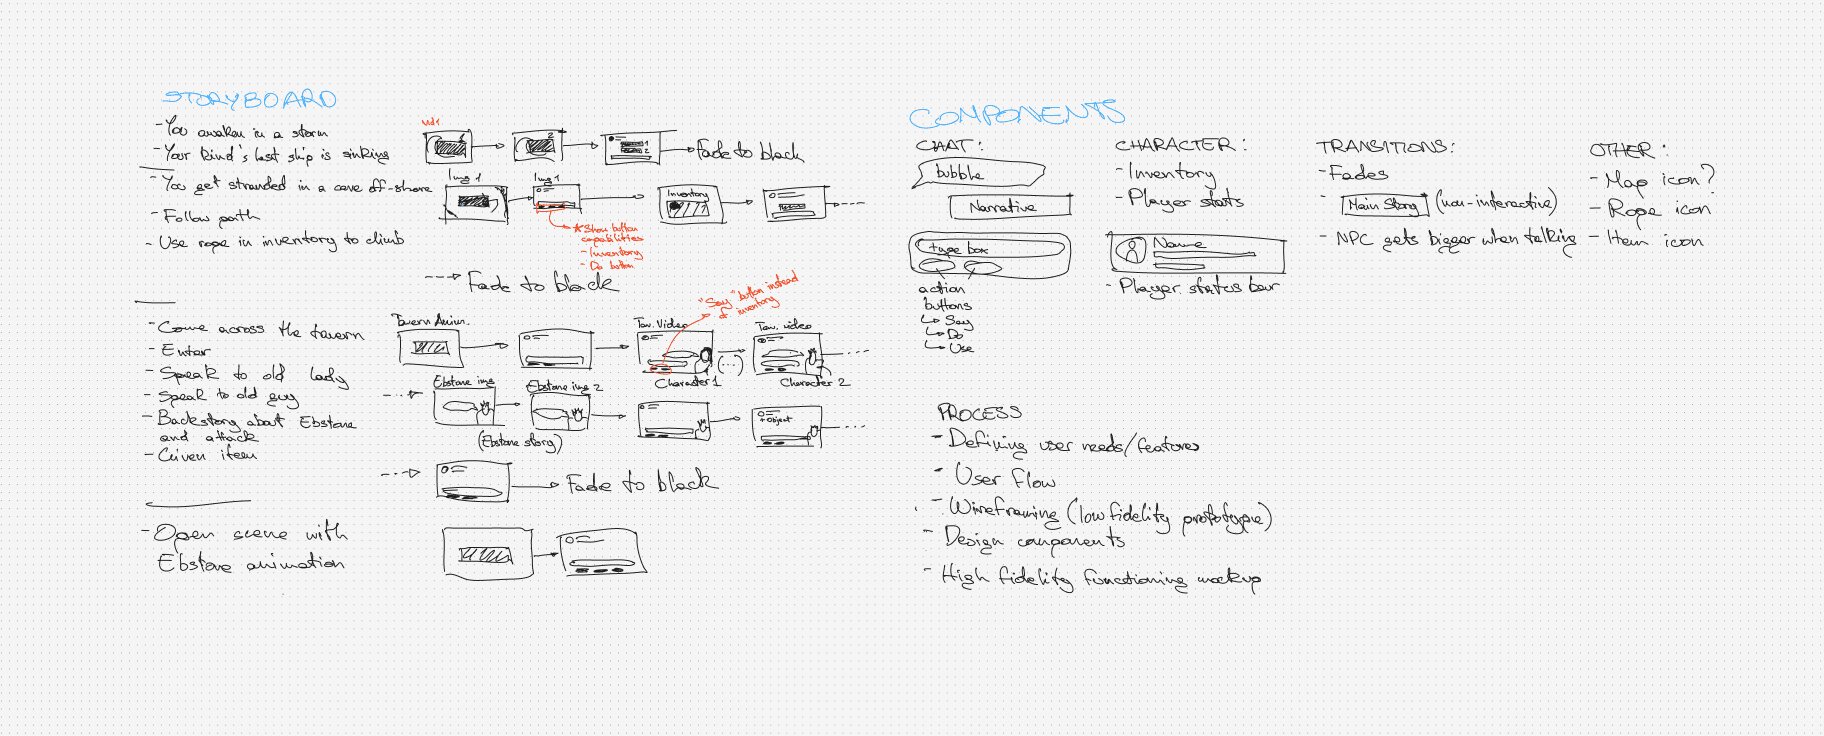 STORYBOARD
- You awaken in a storm
- Your kind's last ship is sinking
- You get stranded in a cave off-shore
- Follow path
- Use rope in inventory to climb
vid1
1
2
1
2
Fade to black
Img 1
Img 1
Inventory
* Show button
capabilities
- Inventory
- Do button
Fade to black
- Come across the tavern
- Enter
- Speak to old lady
- Speak to old guy
- Backstory about Ebstone
and attack
- Given item
Tavern Anim.
Tav. Video
Tav. video
"Say" button instead
of inventory
(...)
Character 1
Character 2
Ebstone img
Ebstone img 2
(Ebstone story)
+ Object
Fade to black
- Open scene with
Ebstone animation
COMPONENTS
CHAT:
bubble
Narrative
type box
action
buttons
↳ Say
↳ Do
↳ Use
CHARACTER:
- Inventory
- Player stats
Name
- Player status bar
TRANSITIONS:
- Fades
- Main Story (non-interactive)
- NPC gets bigger when talking
OTHER:
- Map icon?
- Rope icon
- Item icon
PROCESS
- Defining user needs/features
- User flow
- Wireframing (low fidelity prototype)
- Design components
- High fidelity functioning mockup